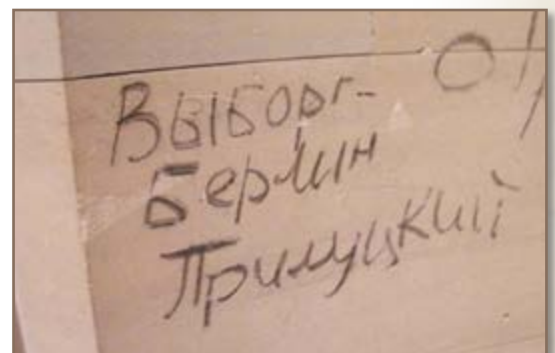 Выборг-
Берлин
Прилуцкий